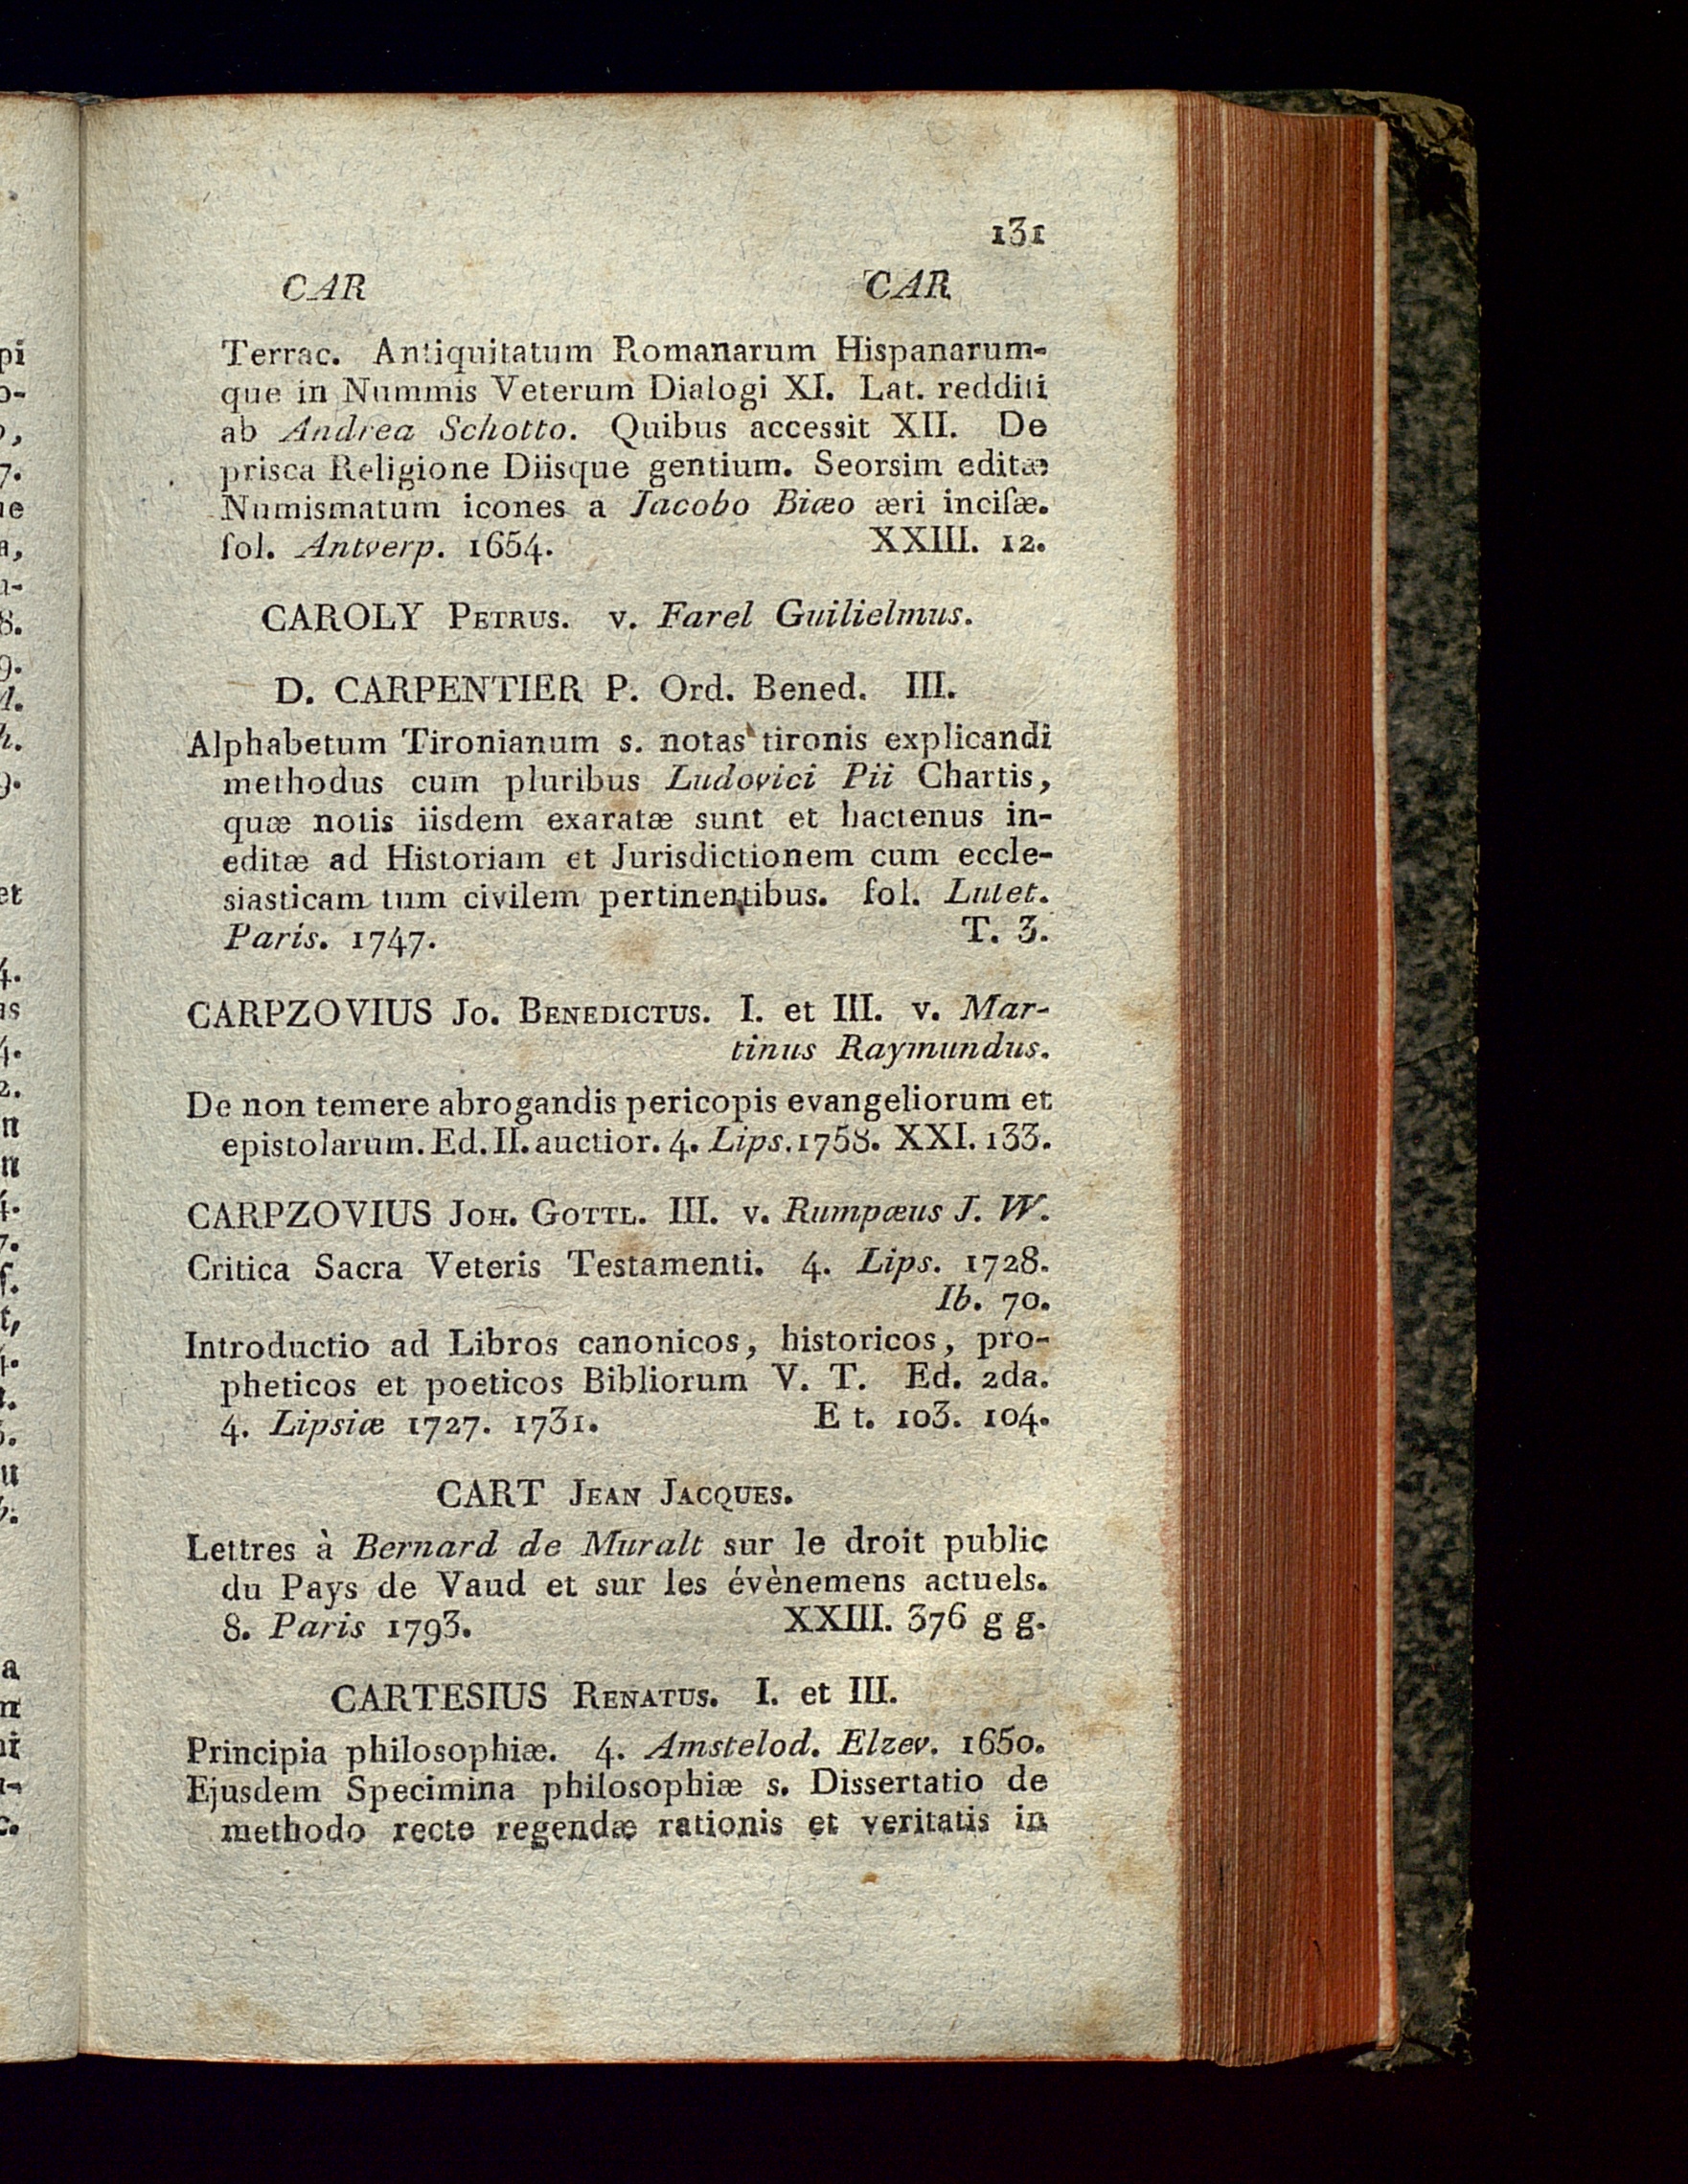 131
CAR CAR
Terrac. Antiquitatum Romanarum Hispanarum-
que in Nummis Veterum Dialogi XI. Lat. redditi
ab Andrea Schotto. Quibus accessit XII. De
prisca Religione Diisque gentium. Seorsim editæ
Numismatum icones a Jacobo Biæo æri inciſæ.
fol. Antverp. 1654. XXIII. 12.
CAROLY PETRUS. v. Farel Guilielmus.
D. CARPENTIER P. Ord. Bened. III.
Alphabetum Tironianum s. notas tironis explicandi
methodus cum pluribus Ludovici Pii Chartis,
quæ notis iisdem exaratæ sunt et hactenus in-
editæ ad Historiam et Jurisdictionem cum eccle-
siasticam tum civilem pertinentibus. fol. Lutet.
Paris. 1747. T. 3.
CARPZOVIUS JO. BENEDICTUS. I. et III. v. Mar-
tinus Raymundus.
De non temere abrogandis pericopis evangeliorum et
epistolarum. Ed. II. auctior. 4. Lips. 1758. XXI. 133.
CARPZOVIUS JOH. GOTTL. III. v. Rumpæus J. W.
Critica Sacra Veteris Testamenti. 4. Lips. 1728.
Ib. 70.
Introductio ad Libros canonicos, historicos, pro-
pheticos et poeticos Bibliorum V. T. Ed. 2da.
4. Lipsiæ 1727. 1731. E t. 103. 104.
CART JEAN JACQUES.
Lettres à Bernard de Muralt sur le droit public
du Pays de Vaud et sur les évènemens actuels.
8. Paris 1793. XXIII. 376 g g.
CARTESIUS RENATUS. I. et III.
Principia philosophiæ. 4. Amstelod. Elzev. 1650.
Ejusdem Specimina philosophiæ s. Dissertatio de
methodo recte regendæ rationis et veritatis in